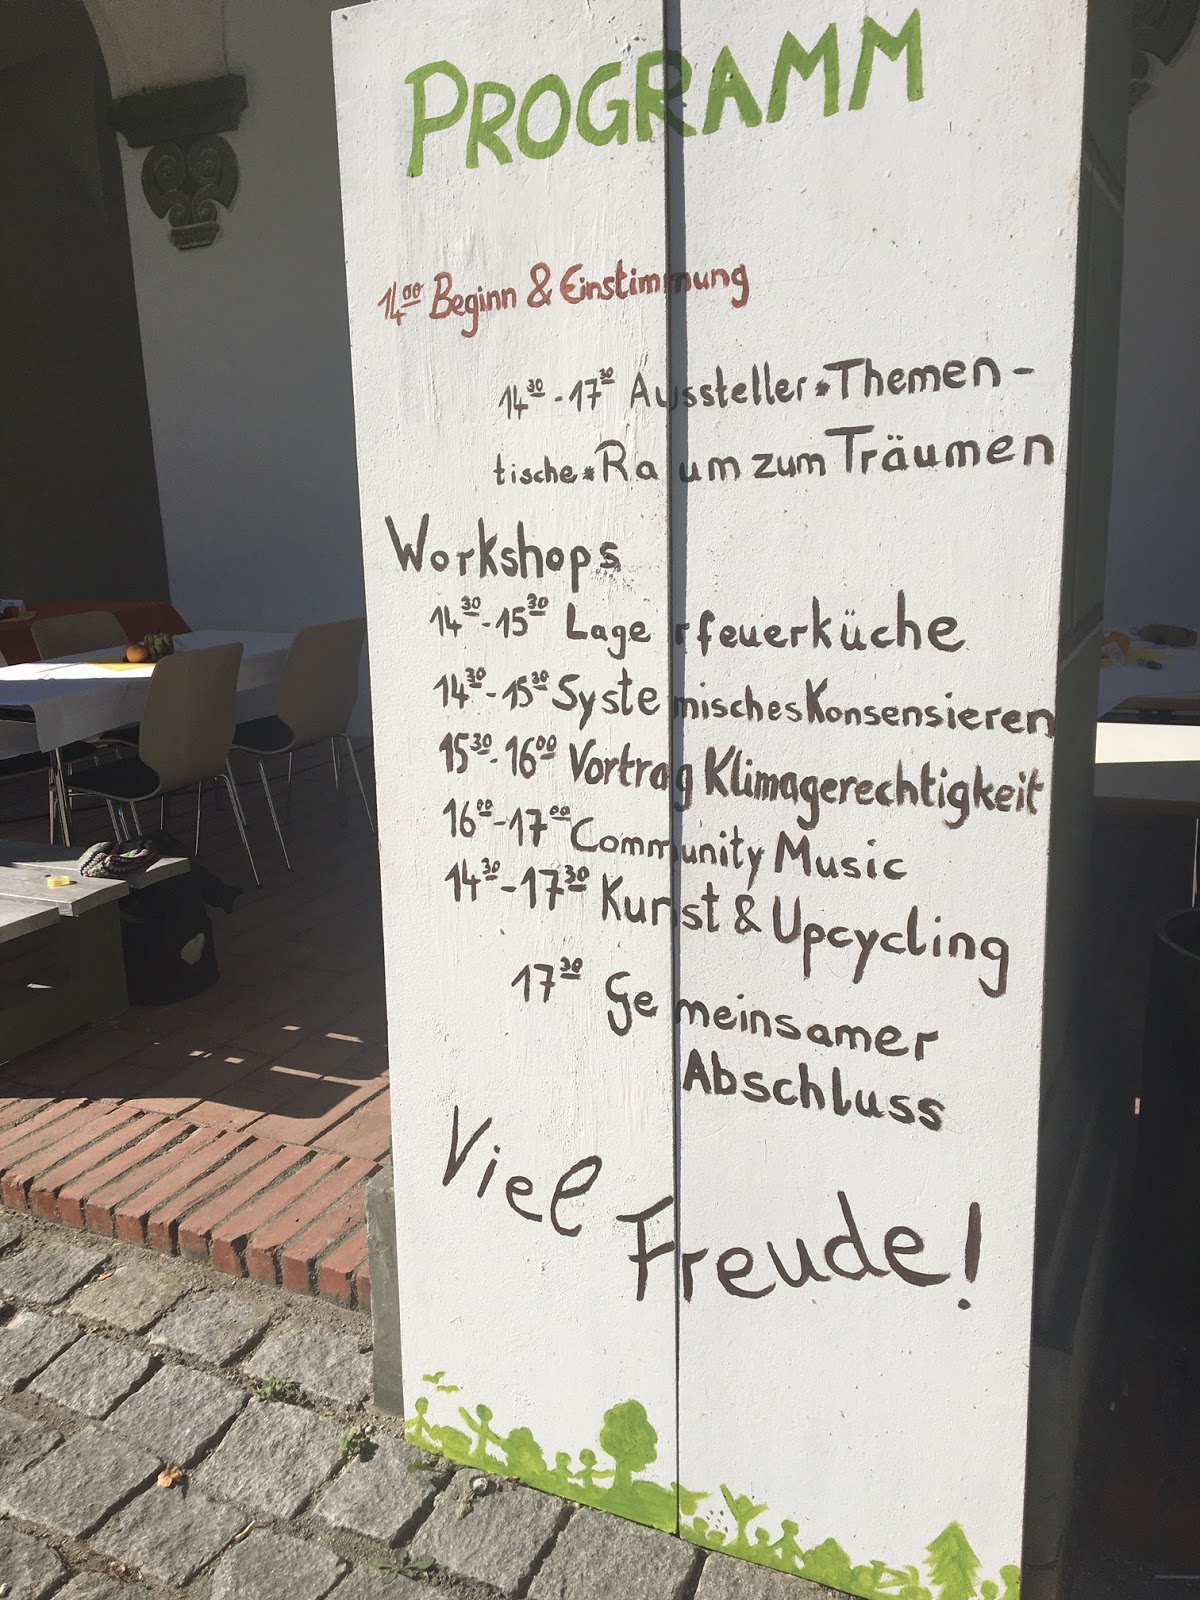 PROGRAMM
14⁰⁰ Beginn & Einstimmung
14³⁰ - 17³⁰ Aussteller * Themen -
tische * Raum zum Träumen
Workshops
14³⁰ - 15³⁰ Lagerfeuerküche
14³⁰ - 15³⁰ Systemisches Konsensieren
15³⁰ - 16⁰⁰ Vortrag Klimagerechtigkeit
16⁰⁰ - 17⁰⁰ Community Music
14³⁰ - 17³⁰ Kunst & Upcycling
17³⁰ Gemeinsamer
Abschluss
Viel
Freude!